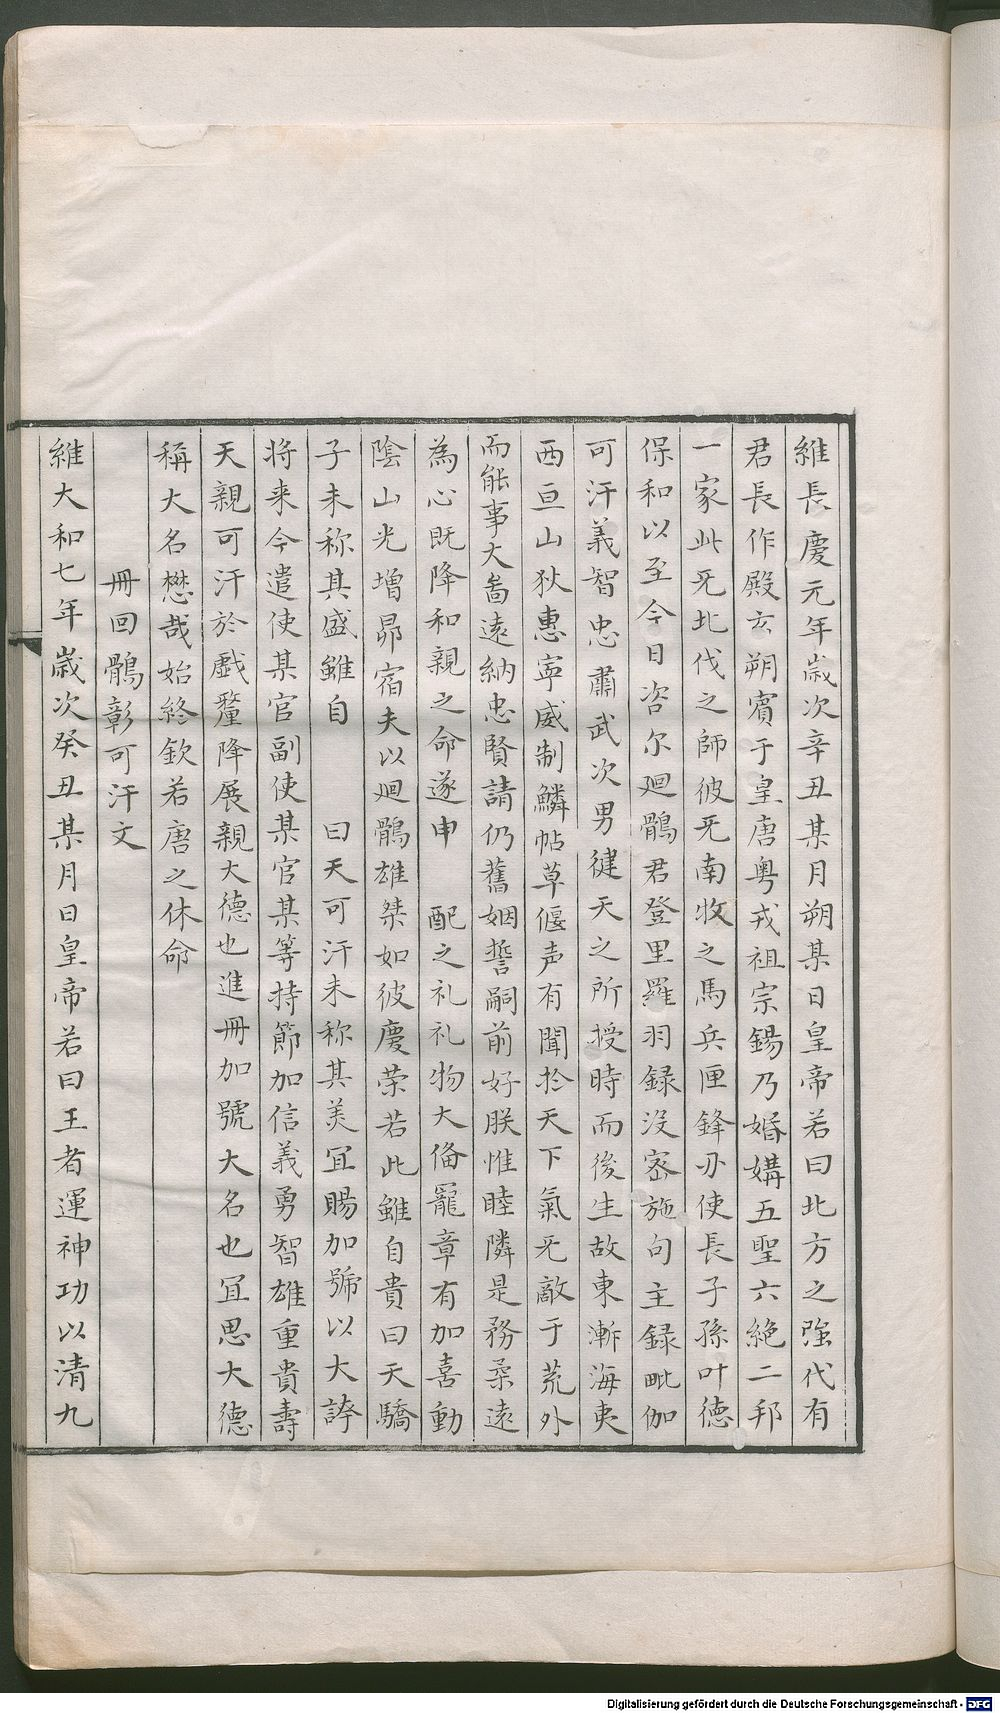 維長慶元年歲次辛丑某月朔某日皇帝若曰北方之強代有
君長作殿玄朔賓于皇唐粵戎祖宗錫乃婚媾五聖六絕二邦
一家此旡北伐之師彼旡南牧之馬兵匣鋒刃使長子孫叶德
保和以至今日咨尔廻鶻君登里羅羽錄沒宻施句主錄毗伽
可汗義智忠肅武次男徤天之所授時而後生故東漸海夷
西亘山狄惠寧威制鱗帖草偃声有聞扵天下氣旡敵于荒外
而能事大啚遠納忠賢請仍舊姻誓嗣前好朕惟睦隣是務柔遠
為心既降和親之命遂申　配之礼礼物大俻寵章有加喜動
陰山光增昴宿夫以廻鶻雄桀如彼慶荣若此雖自貴曰天驕
子未称其盛雖自　曰天可汗未称其美冝賜加號以大誇
将来今遣使某官副使某官某等持節加信義勇智雄重貴壽
天親可汗於戲釐降展親大德也進冊加號大名也冝思大德
稱大名懋哉始終欽若唐之休命
冊回鶻彰可汗文
維大和七年歲次癸丑某月日皇帝若曰王者運神功以清九
Digitalisierung gefördert durch die Deutsche Forschungsgemeinschaft - DFG